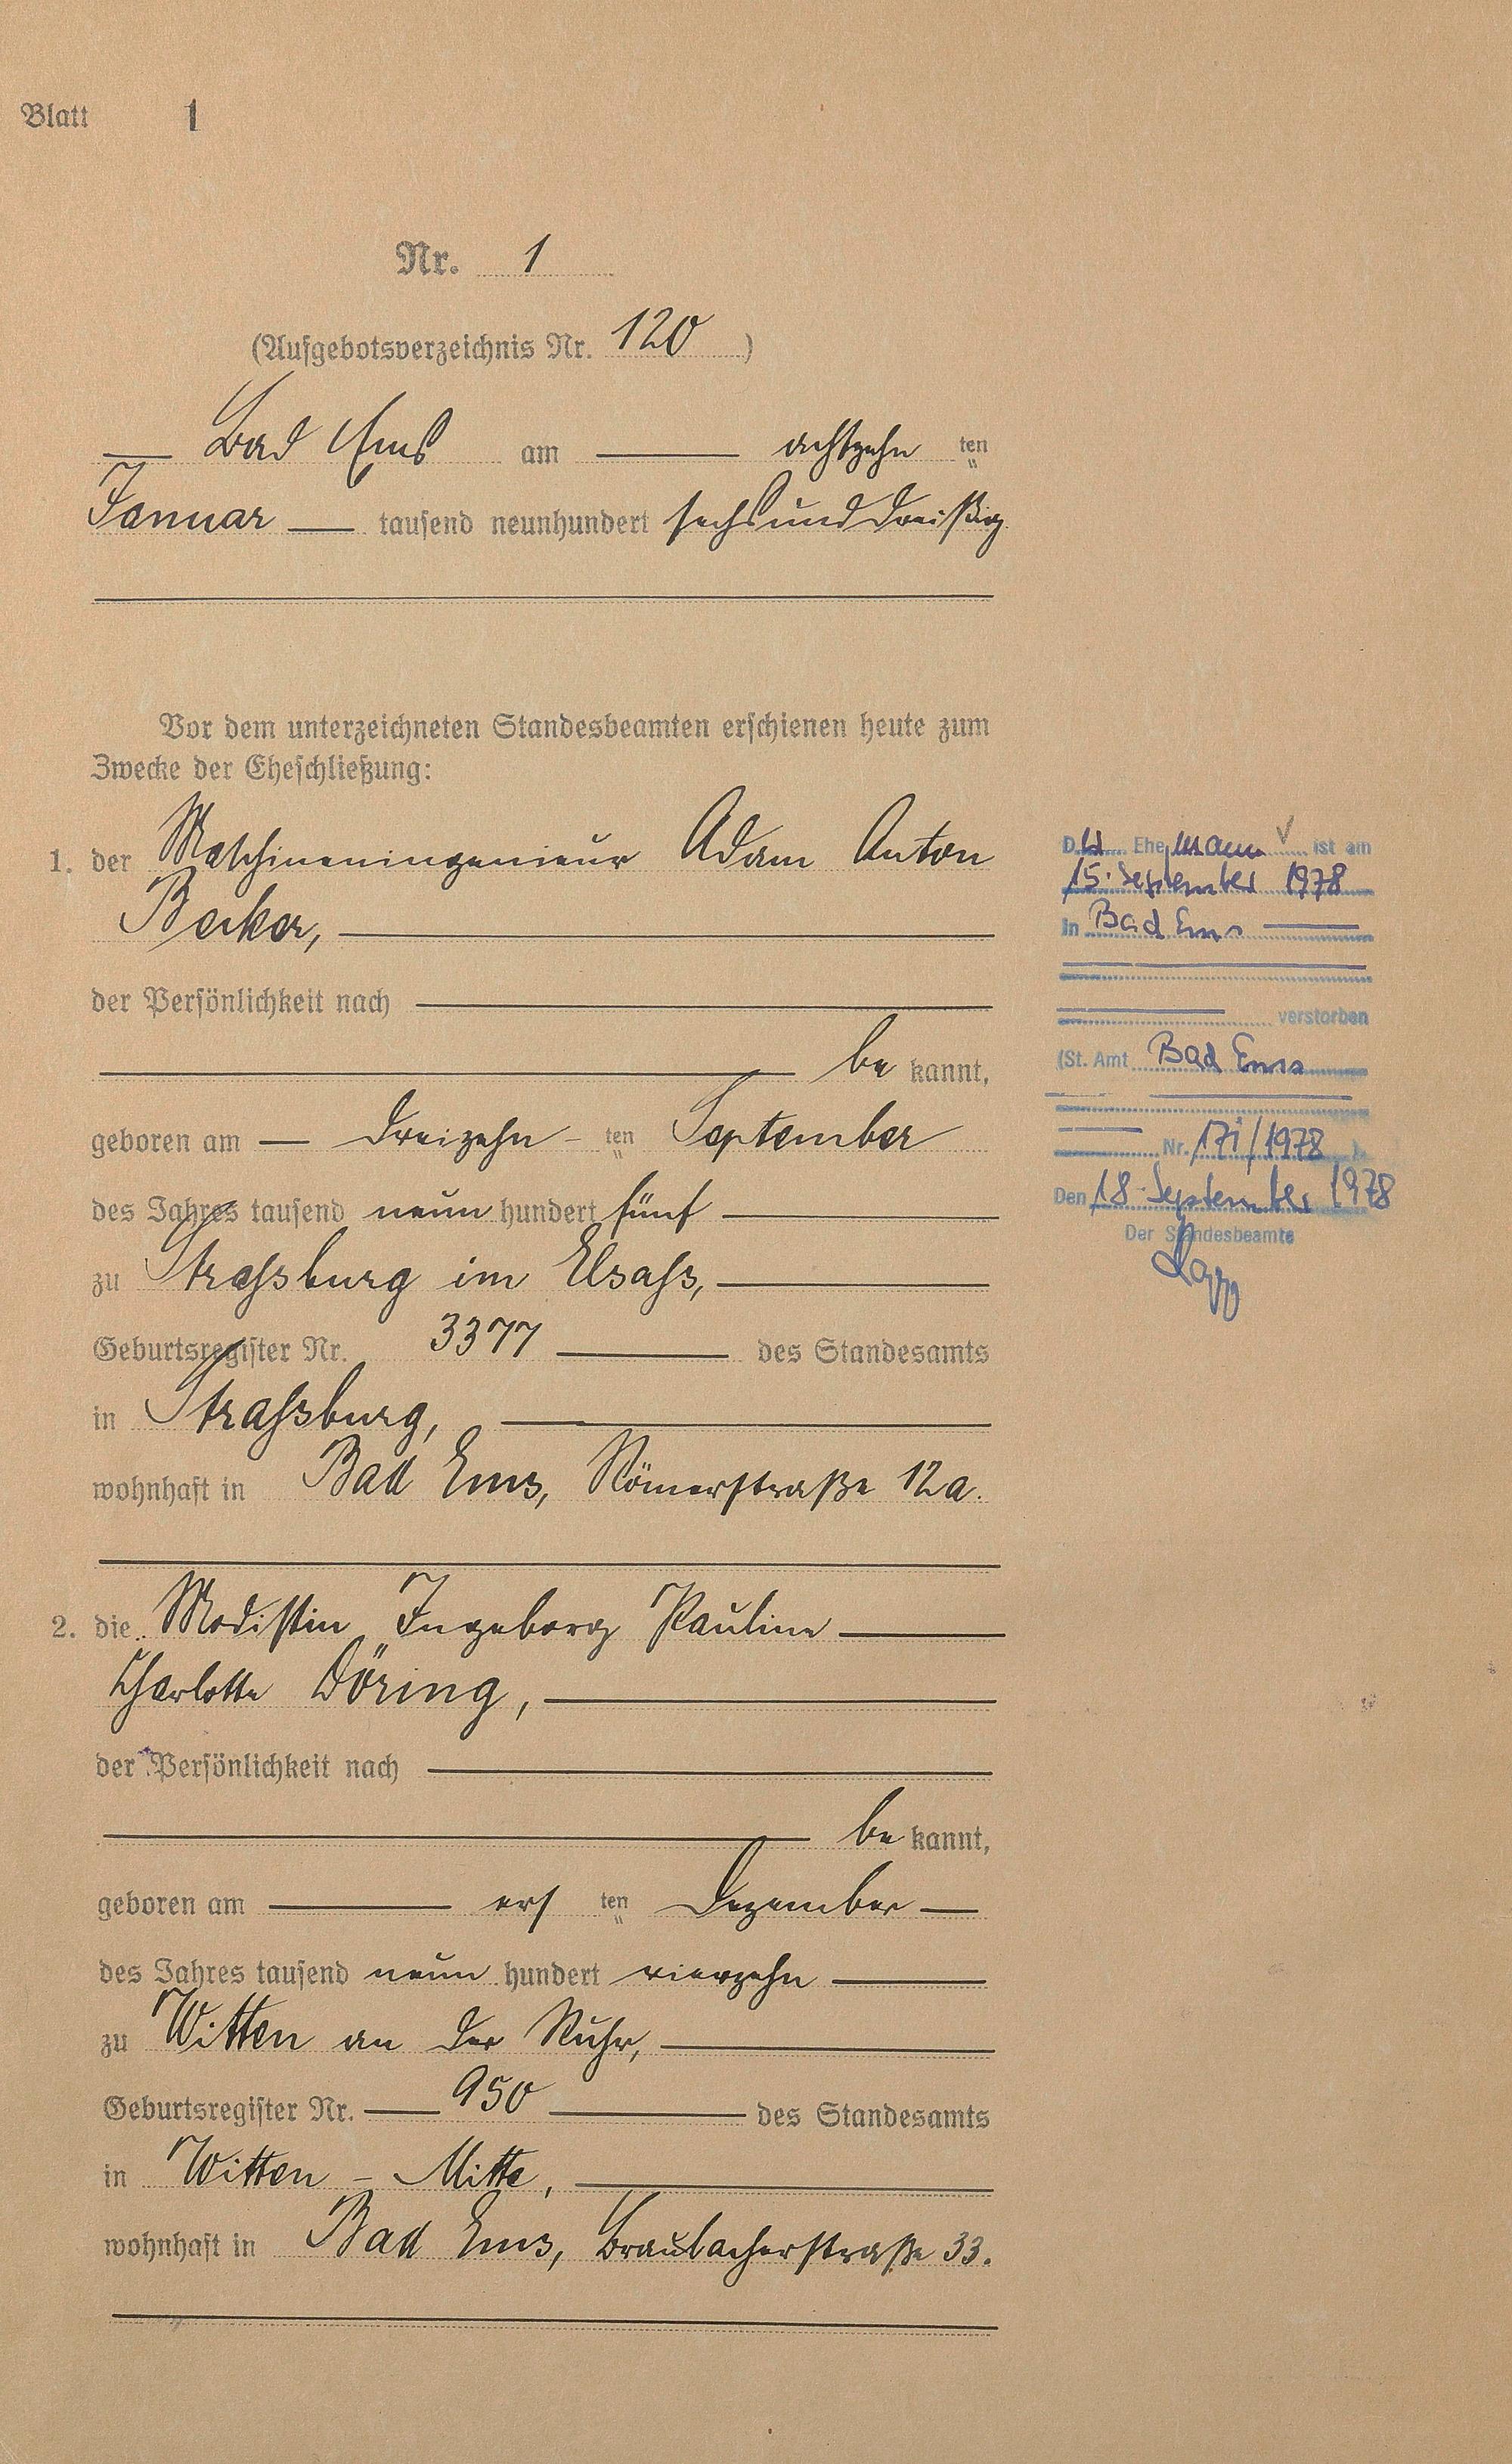 Blatt 1
Nr. 1
(Aufgebotsverzeichnis Nr. 120 )
Bad Ems am achtzehn ten
Januar tausend neunhundert sechsunddreißig
Vor dem unterzeichneten Standesbeamten erschienen heute zum
Zwecke der Eheschließung:
1. der Maschineningenieur Adam Anton
Becker,
der Persönlichkeit nach
be kannt,
geboren am dreizehn ten September
des Jahres tausend neun hundert fünf
zu Strassburg im Elsass,
Geburtsregister Nr. 3377 des Standesamts
in Strassburg,
wohnhaft in Bad Ems, Römerstraße 12a.
2. die Modistin Ingeborg Pauline
Charlotte Döring,
der Persönlichkeit nach
be kannt,
geboren am ers ten Dezember
des Jahres tausend neun hundert vierzehn
zu Witten an der Ruhr,
Geburtsregister Nr. 950 des Standesamts
in Witten - Mitte,
wohnhaft in Bad Ems, Braubacherstraße 33.
D er Ehe mann ist am
15. September 1978
in Bad Ems
verstorben
(St. Amt Bad Ems
Nr. /1978 ).
Den 18. September 1978
Der Standesbeamte